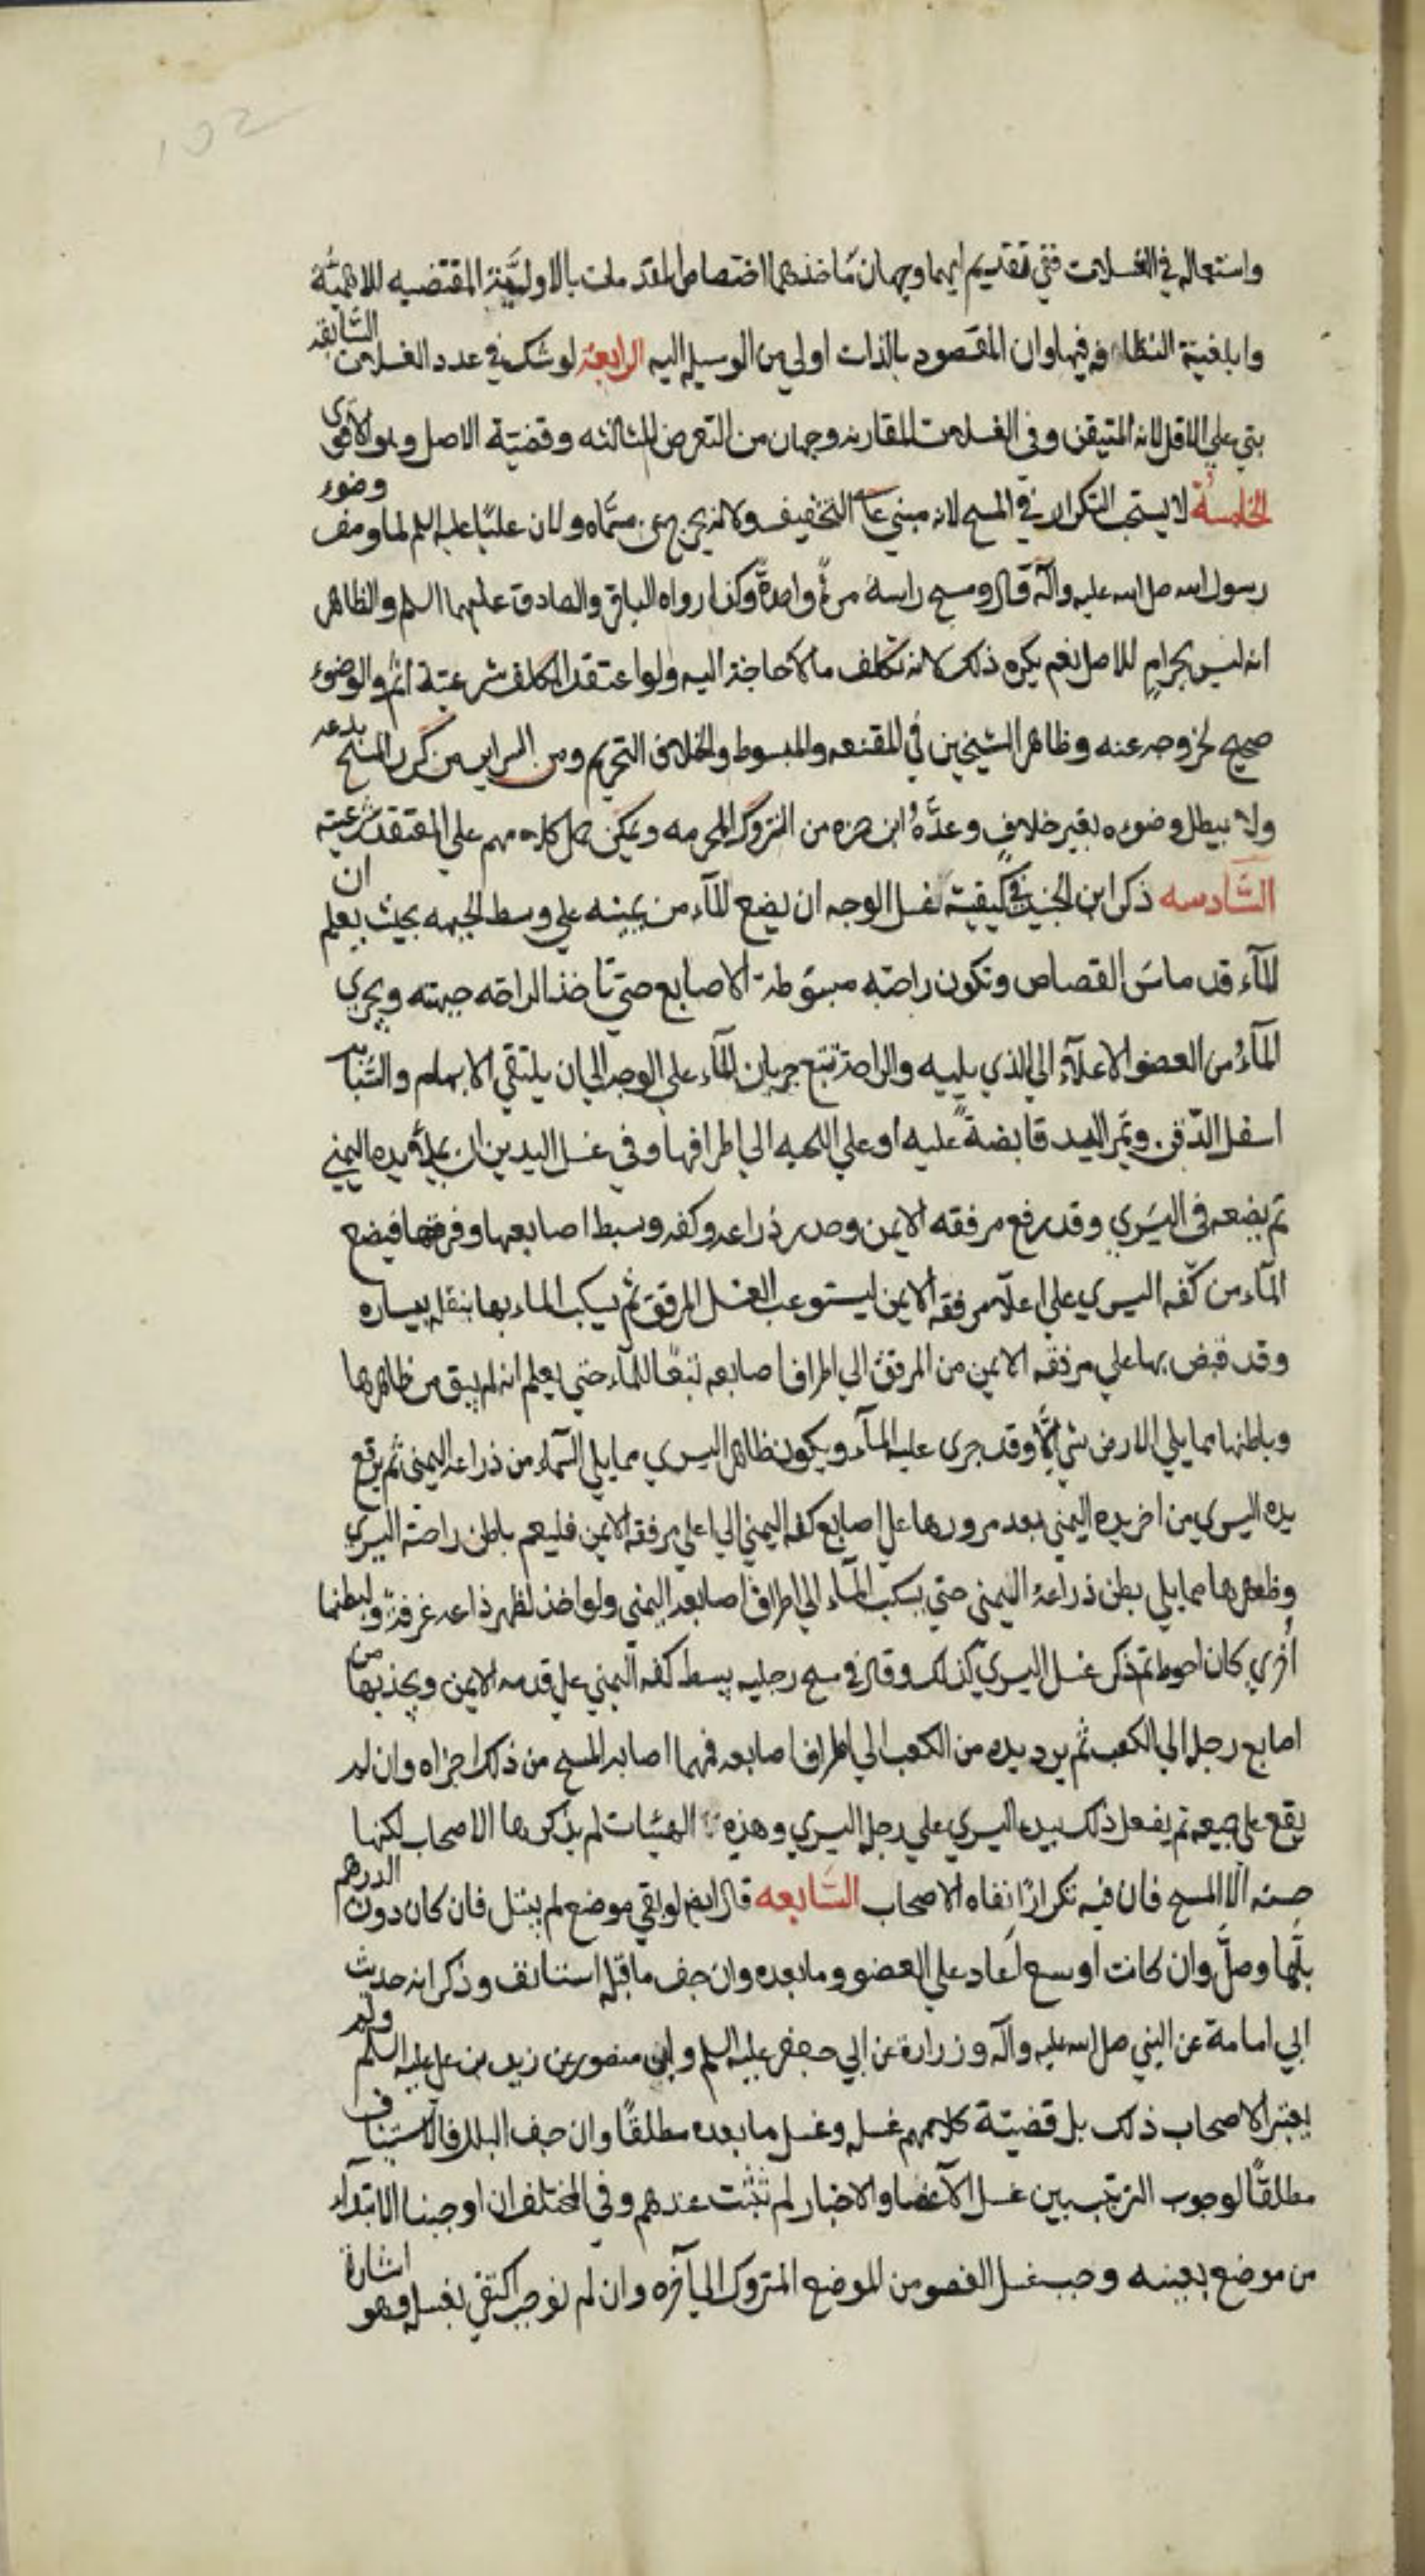 102
واستعماله في الغسلات ففي تقديم ايهما وجهان مأخذهما اختصاص المقدمات بالاوليّة المقتضيه للاهميّة
وابلغيّة النظافه فيها وان المقصود بالذات اولى من الوسيله اليه الرابعة لو شك في عدد الغسلات السّابقه
بني علي الاقل لانه المتيقن وفي الغسلات المقارنه وجهان من التعرض للثالثه وقضيّة الاصل وهو الاقوى
الخامسة لا يستحب التكرار في المسح لانه مبني علي التخفيف ولانه يخرج عن مسمّاه ولان عليًا عليه السلم لما وصف وضوء
رسول الله صلى الله عليه وآله قال ومسح راسه مرةً واحدةً وكذا رواه الباقر والصادق عليهما السلم والظاهر
انه ليس بحرامٍ للاصل نعم يكره ذلك لانه تكلف ما لا حاجة اليه ولو اعتقد المكلف شرعيتة اثم والوضوء
صحيح لخروجه عنه وظاهر الشيخين في المقنعه والمبسوط والخلاف التحريم ومن السراير من كرر المسح بدعه
ولا يبطل وضوءه بغير خلافٍ وعدَّهُ ابن حمزه من التروك المحرمه ويمكن حمل كلامهم علي المعتقد شرعيته
السّادسه ذكر ابن الجنيد في كيفيّة غسل الوجه ان يضع المآء من يمينه علي وسط الجبهه بحيث يعلم ان
المآء قد ماسّ القصاص وتكون راحته مبسوطة الاصابع حتي تأخذ الراحه جبهته ويجري
المآءُ من العضو الاعلآء الي الذي يليه والراحة تتبع جريان المآء علي الوجه الي ان يلتقي الابهام والسّبابه
اسفل الذّقن وتمر اليد قابضةً عليه او علي اللحيه الي اطرافها وفي غسل اليدين ان يملأ يده اليمني
ثم يضعه في اليسَري وقد رفع مرفقه الايمن وحدر ذراعه وكفه وبسط اصابعها وفرجها فيضع
المآء من كفّه اليسري علي اعلآ مرفقه الايمن ليستوعب الغسل المرفق ثم يسكب الماء بها بنقله بيساره
وقد قبض بها علي مرفقه الايمن من المرفق الي اطراف اصابعه تبعًا للمآء حتي يعلم انه لم يبق من ظاهرها
وباطنها مما يلي الارض شي الّا وقد جرى عليه المآء ويكون ظاهر اليسري مما يلي السّماء من ذراعه اليمنى ثم يرفع
يده اليسري من اخر يده اليمني بعد مرورها علي اصابع كفه اليمني الي اعلي مرفقه الايمن فليعم باطن راحته اليسري
وظهرها مما يلي بطن ذراعه اليمنى حتي يسكب المآء الي اطراف اصابعه اليمنى ولو اخذ لظهر ذراعه غرفةً ولبطنها
أخري كان احوط ثم ذكر غسل اليسري كذلك وقال في مسح رجليه يبسط كفه اليمني علي قدمه الايمن ويجذبها من
اصابع رجله الي الكعب ثم يرد يده من الكعب الي اطراف اصابعه فمهما اصابه المسح من ذلك اجزاه وان لم
يقع علي جميعه ثم يفعل ذلك بيده اليسري علي رجله اليسري وهذه الهيئات لم يذكرها الاصحاب لكنها
حسنه الّا المسح فان فيه تكرارًا نفاه الاصحاب السّابعه قال ايضا لو بقي موضع لم يبتل فان كان دون الدرهم
بلّها وصلّ وان كانت اوسع اعاد علي العضو وما بعده وان جف ما قبله استانف وذكر انه حديث
ابي امامة عن النبي صلى الله عليه وآله وزرارة عن ابي جعفر عليه السلم وابن منصور عن زيد بن علي عليه السلم ولم
يعتبر الاصحاب ذلك بل قضيّة كلامهم غسله وغسل ما بعده مطلقًا وان جف البلل فالاستيناف
مطلقًا لوجوب الترتيب بين غسل الآعضا والاخبار لم تثبت عندهم وفي المختلف ان اوجبنا الابتدآء
من موضع بعينه وجب غسل العضو من الموضع المتروك الي آخره وان لم نوجب اكتفي بغسله وهو اشارة